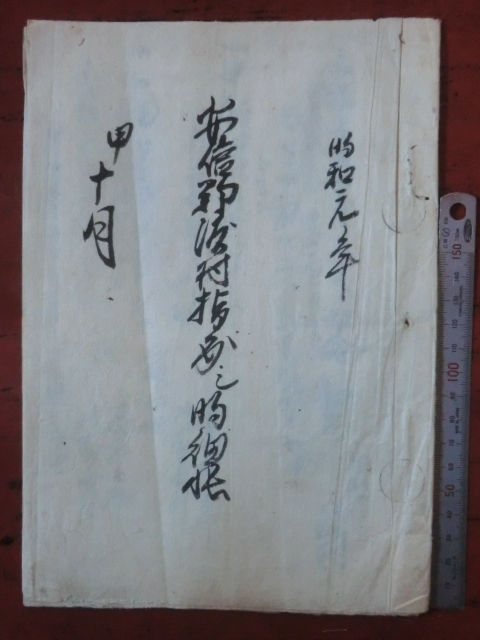 明和元年
安倍郡渡村指出之明細帳
申十月
150
100
50